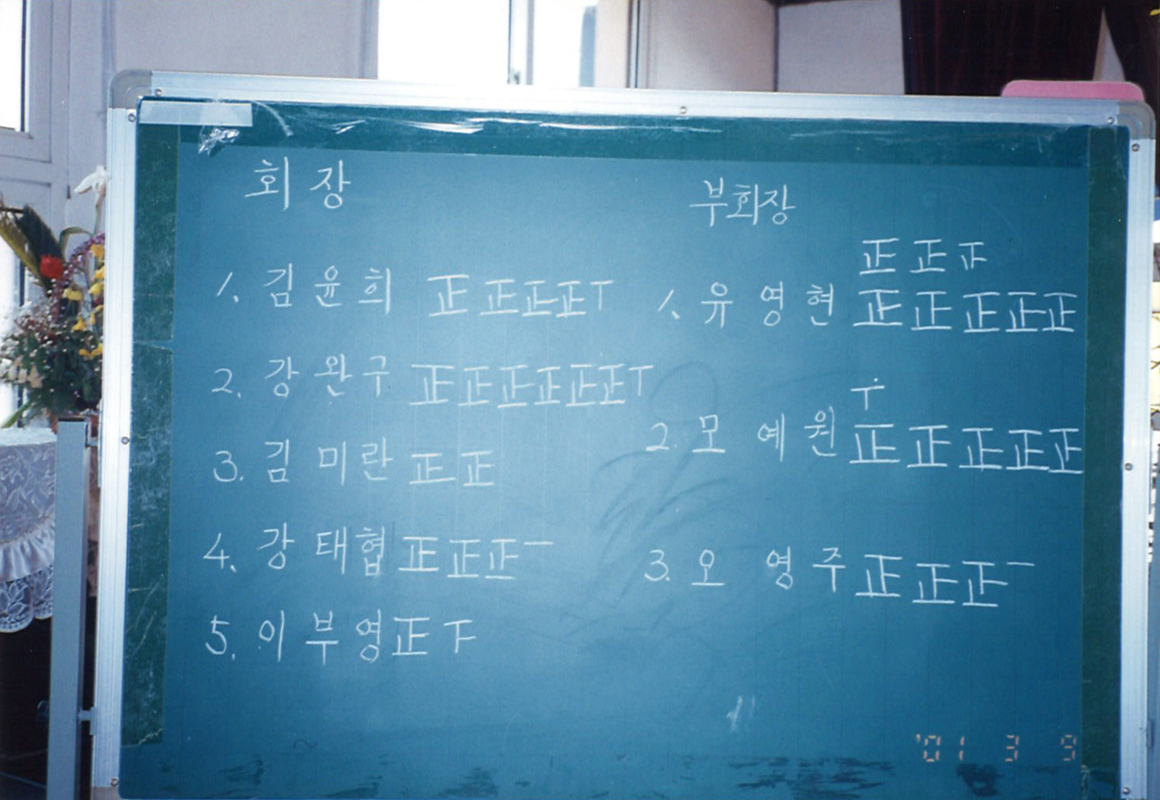 회장
1. 김윤희 正正正正丅
2. 강완구 正正正正正正丅
3. 김미란 正正
4. 강태협 正正正一
5. 이부영 正下
부회장
正正正
1. 유영현 正正正正正
丅
2. 모예원 正正正正正
3. 오영주 正正正一
'01 3 9